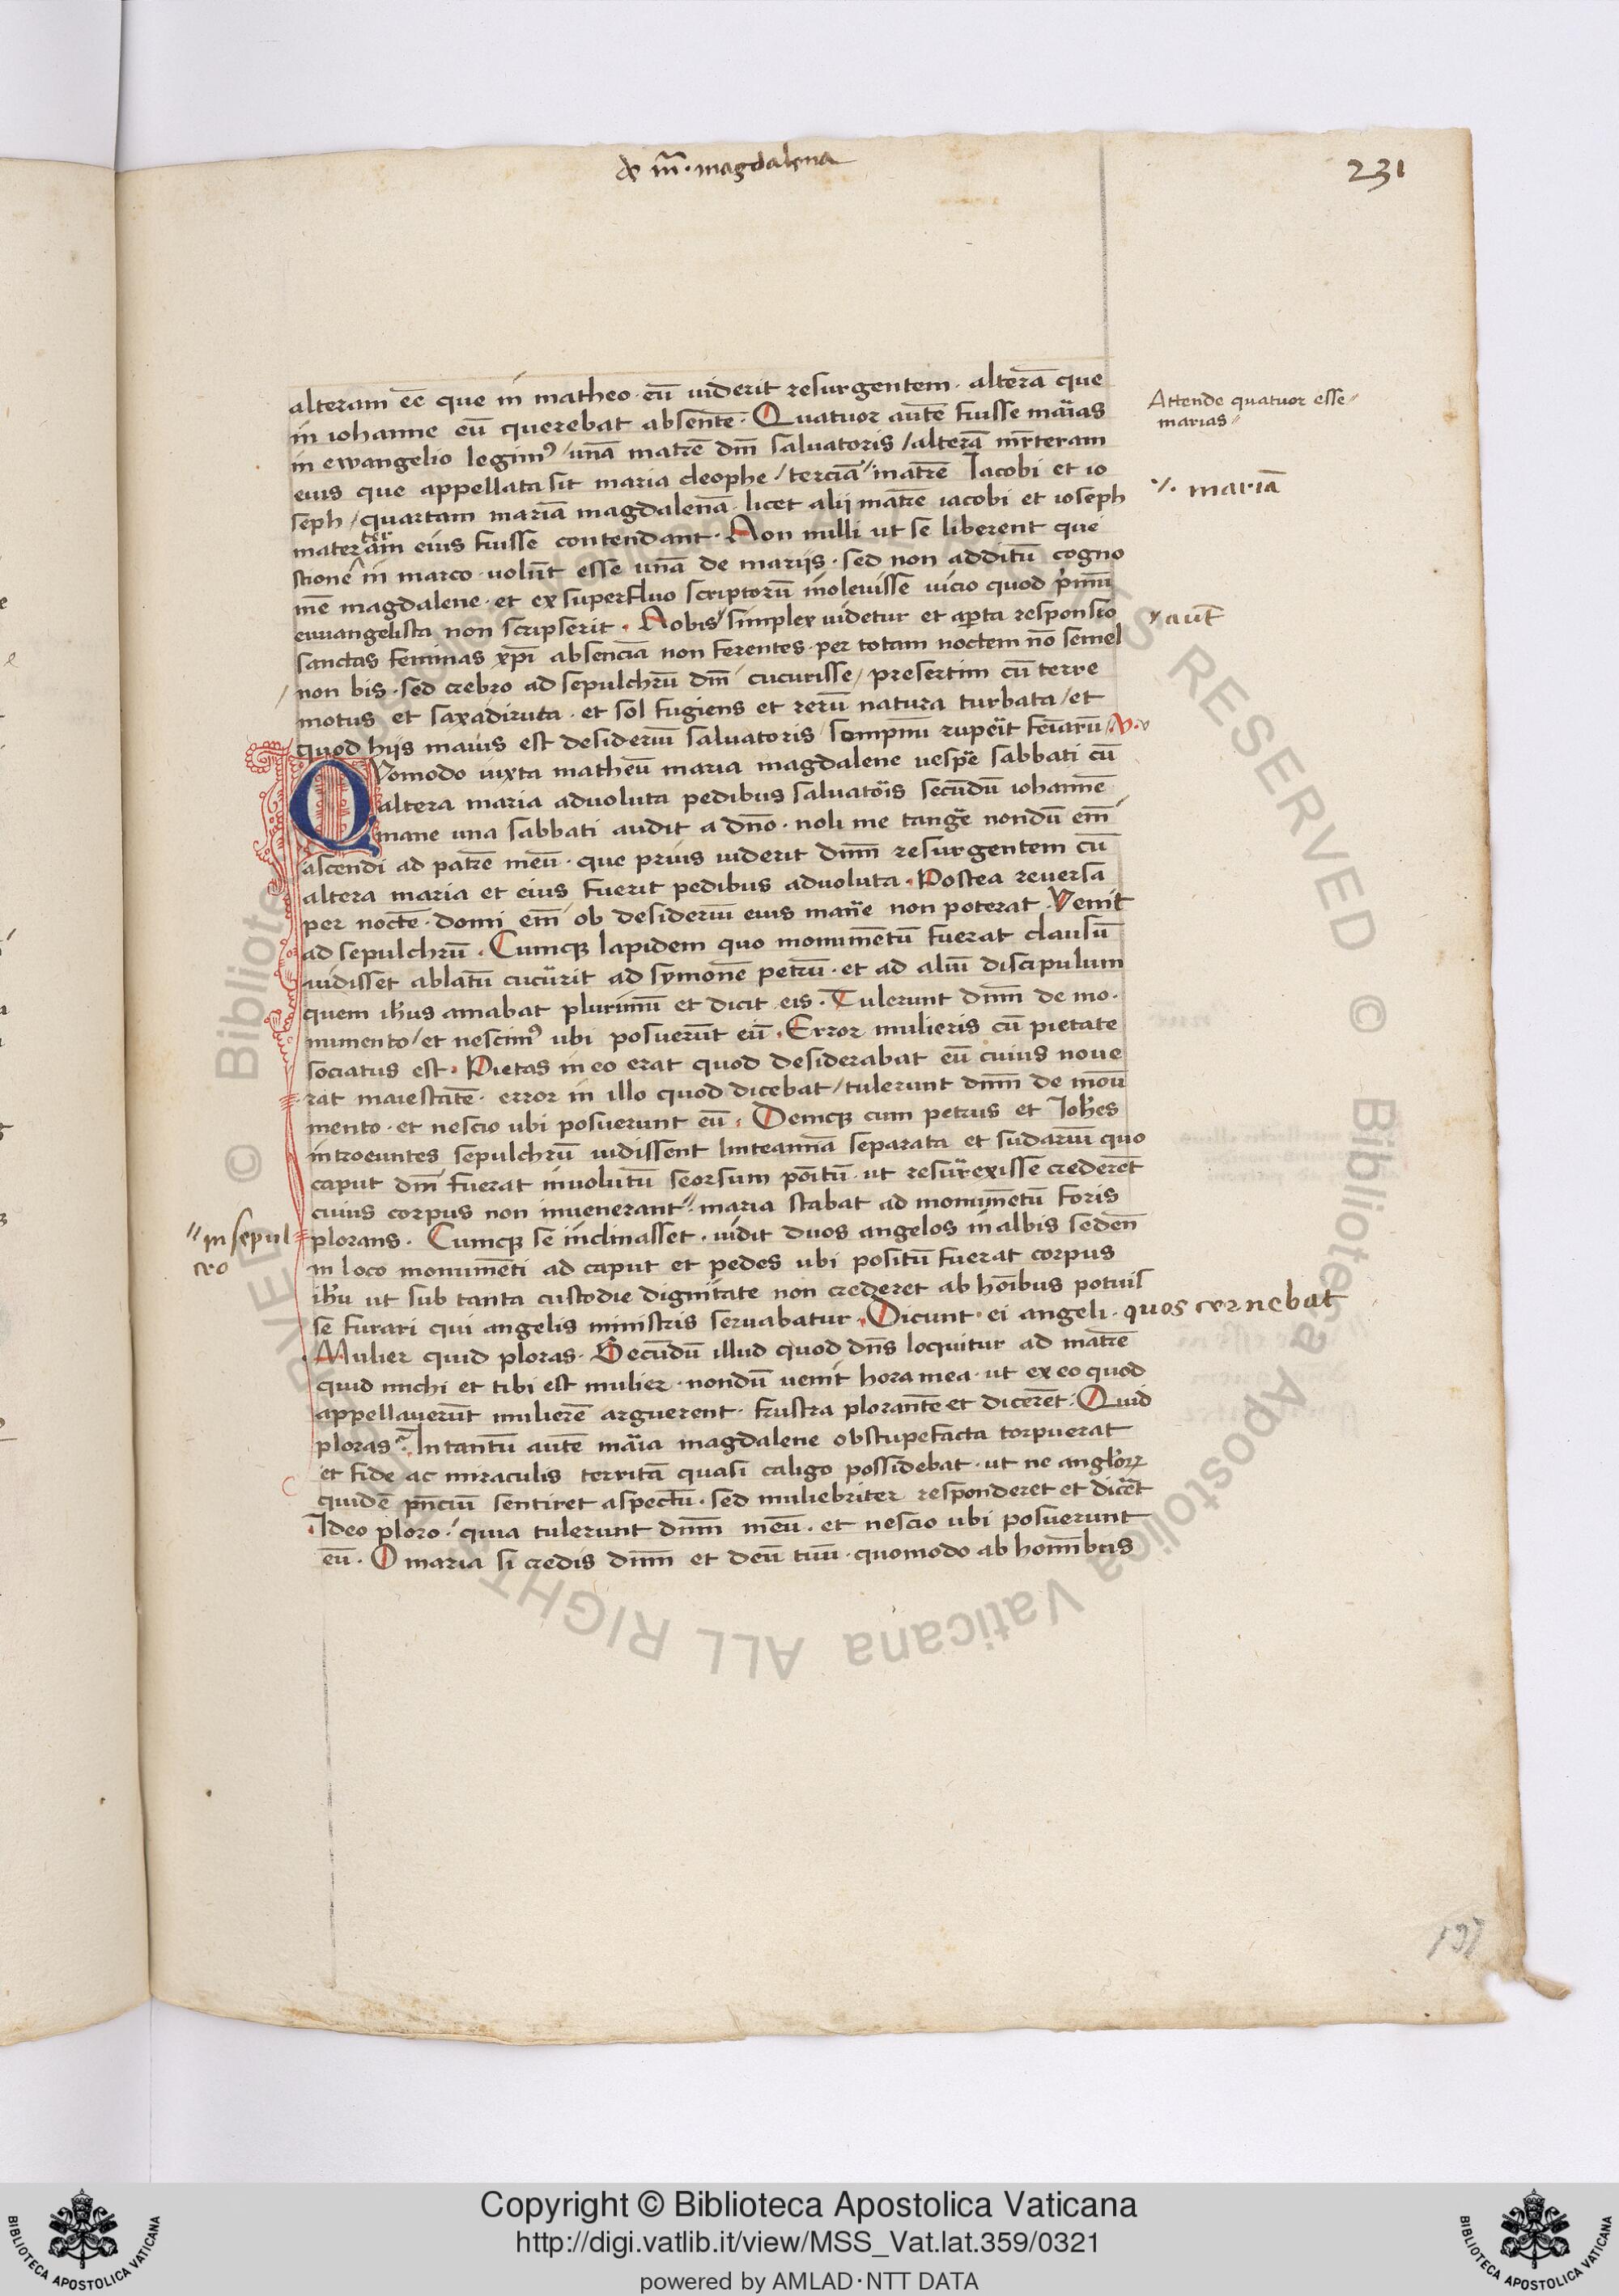 & m̃. magdalena
231
alteram eē que in matheo. eū uiderit resurgentem. alterā que
in iohanne eū querebat absentē. Quatuor autē fuisse māias
in ewangelio legim⁹/ unā matrē dm̄ saluatoris/ alterā mr̄teram
eius que appellata sit maria cleophe/ terciā matrē Iacobi et io
seph/ quartam mariā magdalenā. licet alij matrē iacobi et ioseph
materteram eius fuisse contendant. Non nulli ut se liberent que
stionē in marco uolūt esse unā de mariis. sed non additū cogno
mē magdalene. et ex superfluo scriptorū inoleuisse uicio quod p̄mū
euuangelista non scripserit. Nobis simplex uidetur et aꝑta responsio
sanctas feminas xp̄i absenciā non ferentes. per totam noctem nō semel
non bis. sed crebro ad sepulchrū dm̄ cucurisse/ presertim cū terre
motus et saxa diruta. et sol fugiens et rerū natura turbata/ et
quod hijs maius est desideriū saluatoris sompnū rupeīt feīarū/ ꝶ. v
Quomodo iuxta matheū maria magdalene uesꝑe sabbati cū
altera maria aduoluta pedibus saluatōis secundū iohannē
mane una sabbati audit a dn̄o. noli me tangē nondū em̄
ascendi ad patrē meū. que prius uiderit dnm̄ resurgentem cū
altera maria et eius fuerit pedibus aduoluta. Postea reuersa
per noctē. domi em̄ ob desideriū eius man̄e non poterat. Venit
ad sepulchrū. Cumqꝫ lapidem quo monumētū fuerat clausū
uidisset ablatū cucūrit ad symonē petrū. et ad aliū discipulum
quem ih̄us amabat plurimū et dicit eis. Tulerunt dnm̄ de mo.
numento/ et nescim⁹ ubi posuerūt eū. Error mulieris cū pietate
sociatus est. Pietas in eo erat quod desiderabat eū cuius noue
rat maiestatē. error in illo quod dicebat/ tulerunt dnm̄ de monū
mento. et nescio ubi posuerunt eū. Demqꝫ cum petrus et Ioh̄es
introeuntes sepulchrū uidissent linteannā separata et sudariū quo
caput dm̄ fuerat inuolutū seorsum poītū. ut resur̄exisse crederēt
cuius corpus non inuenerant. maria stabat ad monumētū foris
plorans. Cumqꝫ se inclinasset. uidit duos angelos in albis sedeñ
in loco monumēti ad caput et pedes ubi positū fuerat corpus
ih̄u ut sub tanta custodie dignitate non crederet ab hoībus potuis
se furari qui angelis ministris seruabatur. Dicunt ei angeli. quos cernebat
Mulier quid ploras. Secundū illud quod dn̄s loquitur ad matrē
quid michi et tibi est mulier. nondū uenit hora mea. ut ex eo quod
appellauerūt mulierē arguerent. frustra plorantē et dicerēt. Quid
ploras? In tantū autē māia magdalene obstupefacta torpuerat
et fide ac miraculis territā quasi caligo possidebat. ut ne angl̄orꝝ
quidē pn̄ciū sentiret aspectū. sed muliebriter responderet et dicēt
Ideo ploro. quia tulerunt dnm̄ meū. et nescio ubi posuerunt
eū. O maria si credis dnm̄ et deū tuū. quomodo ab hom̄ībus
Attende quatuor esse
marias
mariā
aut̄
in sepul
cro
137
© Biblioteca Apostolica Vaticana ALL RIGHTS RESERVED
Copyright © Biblioteca Apostolica Vaticana
http://digi.vatlib.it/view/MSS_Vat.lat.359/0321
powered by AMLAD·NTT DATA
BIBLIOTECA APOSTOLICA VATICANA
BIBLIOTECA APOSTOLICA VATICANA